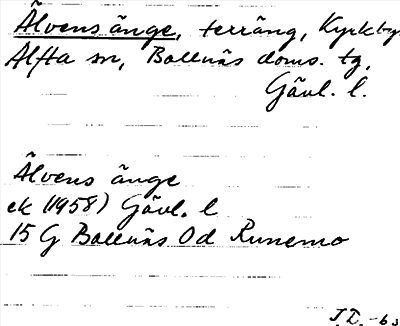 Älvens änge, terräng, Kyrkby
Alfta sn, Bollnäs doms. tg,
Gävl. l.
Älvens änge
ek (1958) Gävl. l
15 G Bollnäs Od Runemo
J.I. -63